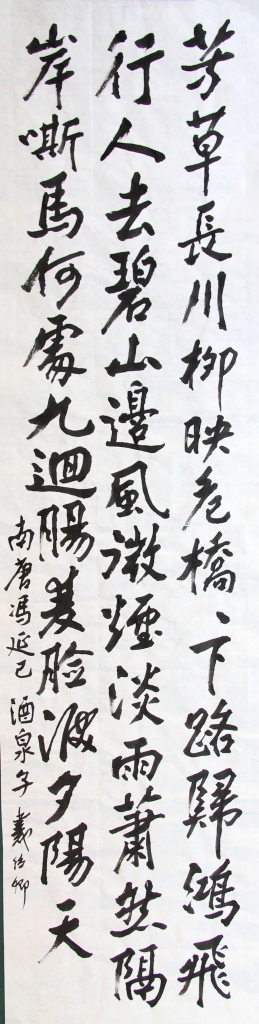 芳草長川柳映危橋、下路歸鴻飛
行人去碧山邊風微煙淡雨蕭然隔
岸嘶馬何處九迴腸雙脸淚夕陽天
南唐冯延巳 酒泉子 戴